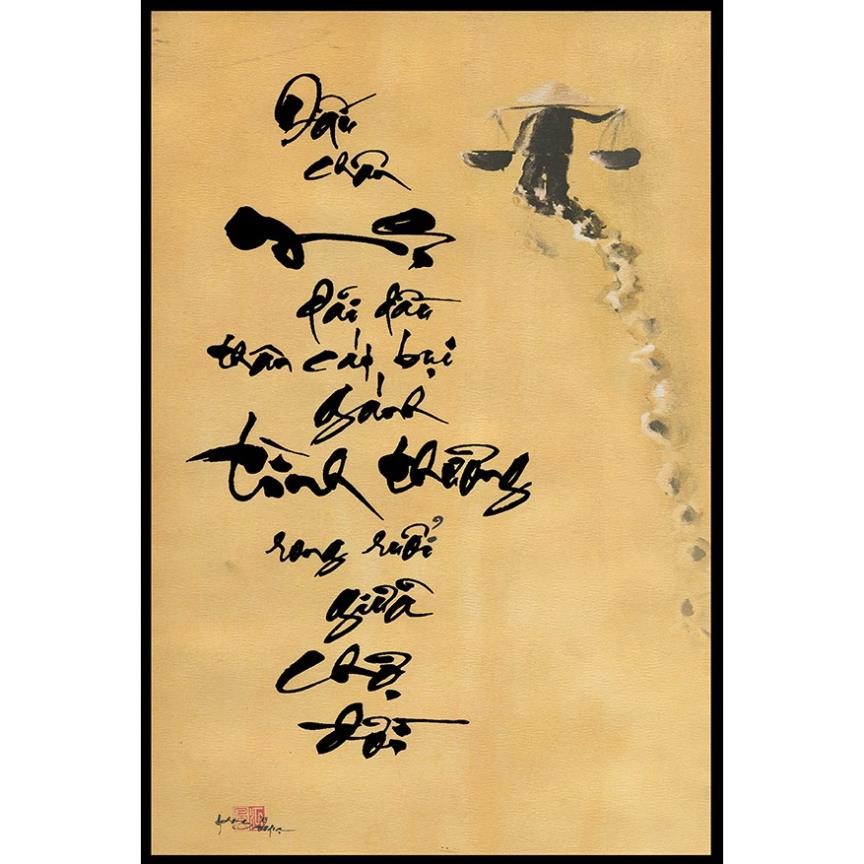 Dấu
chân
Mẹ
dãi dầu
thân cát bụi
gánh
tình thương
rong ruổi
giữa
chợ
đời